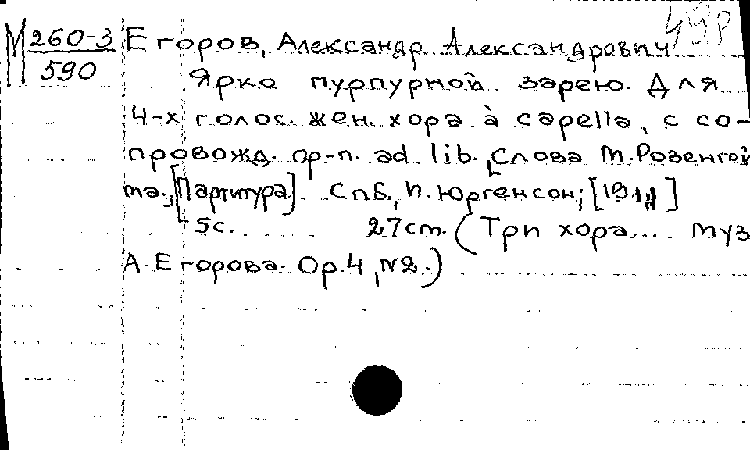 М 260-3
590
49р
Егоров, Александр Александрович
Ярко пурпурной зарею. Для
4-х голос. жен. хора à capella, с со-
провожд. ор-п. ad lib. Слова М. Розенгей
ма. [Партитура]. СПб, П. Юргенсон, [1911]
5с. 27см. (Три хора... муз
А. Егорова. Op. 4, №2.)